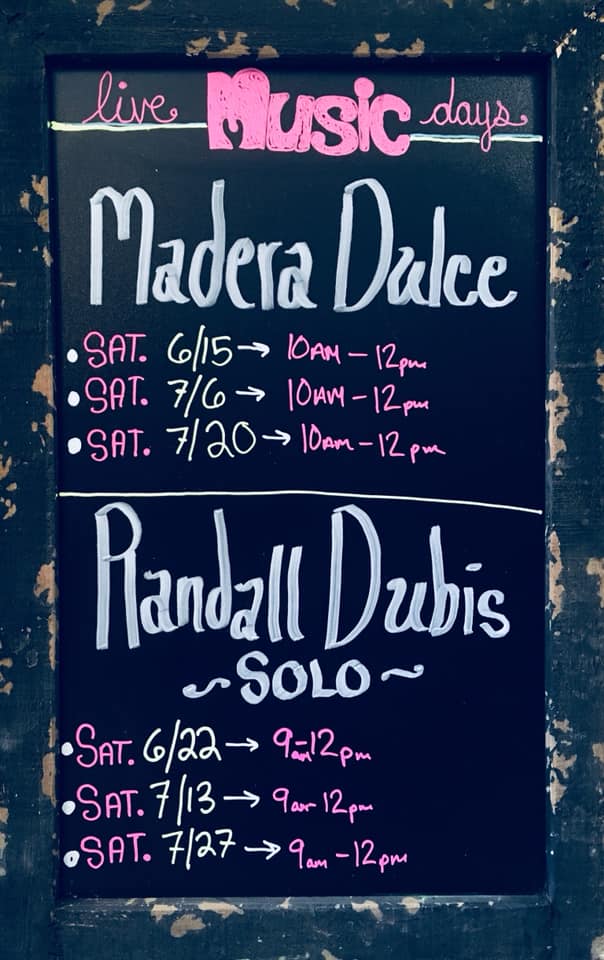 live Music days
Madera Dulce
• SAT. 6/15 → 10AM - 12pm
• SAT. 7/6 → 10AM - 12pm
• SAT. 7/20 → 10AM - 12pm
Randall Dubis
~ SOLO ~
• SAT. 6/22 → 9am-12pm
• SAT. 7/13 → 9am-12pm
• SAT. 7/27 → 9am - 12pm